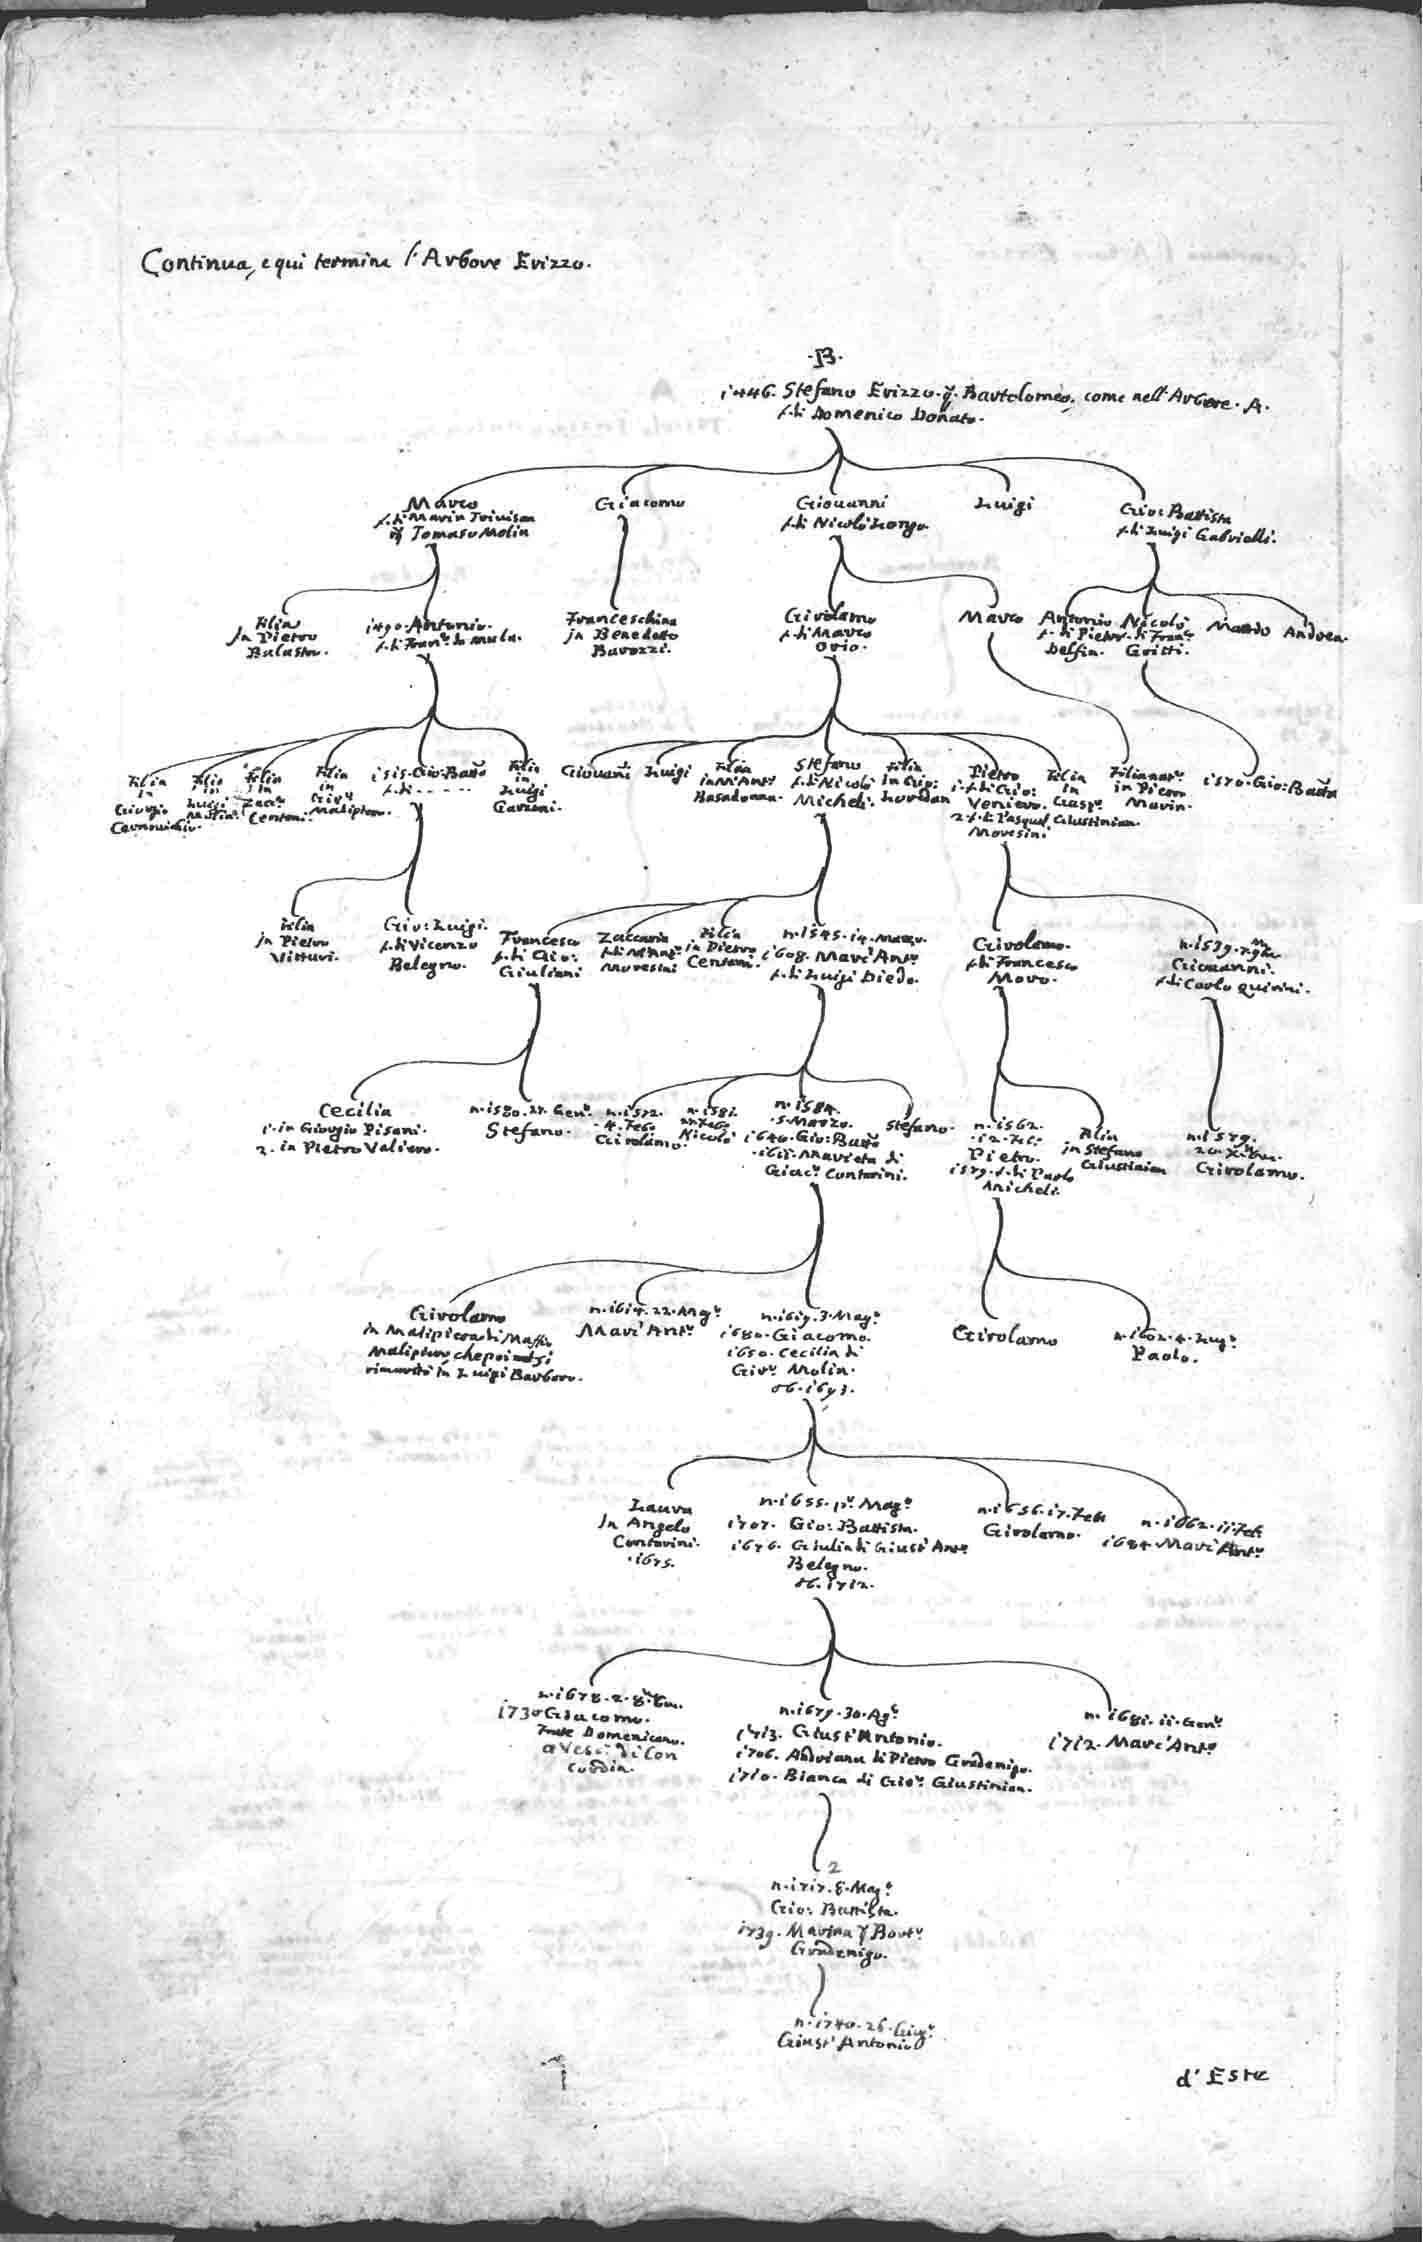 Continua, e qui termina l'Arbore Erizzo.
·B·
1446. Stefano Erizzo. q. Bartolomeo, come nell'Arbore. A.
f. di Domenico Donato.
Marco
f. di Marin Trivisan
q Tomaso Molin
Giacomo
Giovanni
f. di Nicolò Longo.
Luigi
Gio: Battista
f. di Luigi Gabrielli.
Filia
in Pietro
Balastro.
1490. Antonio.
f. di Franc.º da Mula.
Franceschina
in Benedetto
Barozzi.
Girolamo
f. di Marco
Orio.
Marco
Antonio
f. di Pietro
Delfin.
Nicolò
f. di Franc.º
Gritti.
Maffio
Andrea.
Filia
in
Giorgio
Filia
in
Luigi
Molin.
Filia
in
Zacc.ª
Centani.
Filia
in
Gio:
Malipiero.
1515. Gio: Batta
f. di - - - -
Filia
in
Luigi
Garzoni.
Giovanni
Luigi
Filia
in M. Ant.º
Basadonna.
Stefano
f. di Nicolò
Micheli.
Filia
in Gio:
Loredan
Pietro
1. f. di Gio:
Veniero.
2. f. di Pasqual
Moresini
Filia
in
Gasp.º
Giustinian.
Filia nat.ª
in Pietro
Marin.
1570. Gio: Batta
Filia
in Pietro
Vitturi.
Gio: Luigi.
f. di Vicenzo
Belegno.
Francesco
f. di Gio:
Giuliani
Zaccaria
f. di M. Ant.º
Moresini
Filia
in Pietro
Centani.
n. 1545. 14. Marzo.
1608. Marc'Ant.º
f. di Luigi Diedo.
Girolamo.
f. di Francesco
Moro.
n. 1539. 7. 9bre
Giovanni.
f. di Carlo Quirini.
Cecilia
1. in Giorgio Pisani.
2. in Pietro Valiero.
n. 1580. 27. Gen.º
Stefano.
n. 1572.
4. Feb.º
Girolamo.
n. 1581.
Feb.º
Nicolò
n. 1584.
5. Marzo.
1640. Gio: Batta
1611. Marieta di
Giac.º Contarini.
Stefano.
n. 1562.
12. Feb:
Pietro.
1579. f. di Paolo
Micheli.
Filia
in Stefano
Giustinian
n. 1579.
20. Xbre.
Girolamo.
Girolamo
in Malipiera di Maffio
Malipiero, che poi
rimaritò in Luigi Barbaro.
n. 1614. 22. Mag.º
Marc'Ant.º
n. 1619. 3. Mag.º
1680. Giacomo.
1650. Cecilia di
Gio: Molin.
ob. 1693.
Girolamo
n. 1602. 4. Lug.º
Paolo.
Laura
in Angelo
Contarini.
1675.
n. 1655. p.º Mag.º
1707. Gio: Battista.
1676. Giulia di Giust'Ant.º
Belegno.
ob. 1712.
n. 1656. 17. Feb
Girolamo.
n. 1662. 11. Feb
1684. Marc'Ant.º
n. 1678. 2. 8bre.
1730 Giacomo.
Frate Domenicano.
a Vesc: di Con
cordia.
n. 1679. 30. Ag.º
1713. Giust'Antonio.
1706. Andriana di Pietro Gradenigo.
1710. Bianca di Gio: Giustinian.
n. 1681. 11. Gen.º
1712. Marc'Ant.º
2
n. 1717. 8. Mag.º
Gio: Battista.
1739. Marina q Bort.º
Gradenigo.
n. 1740. 26. Giug.º
Giust'Antonio
d'Este